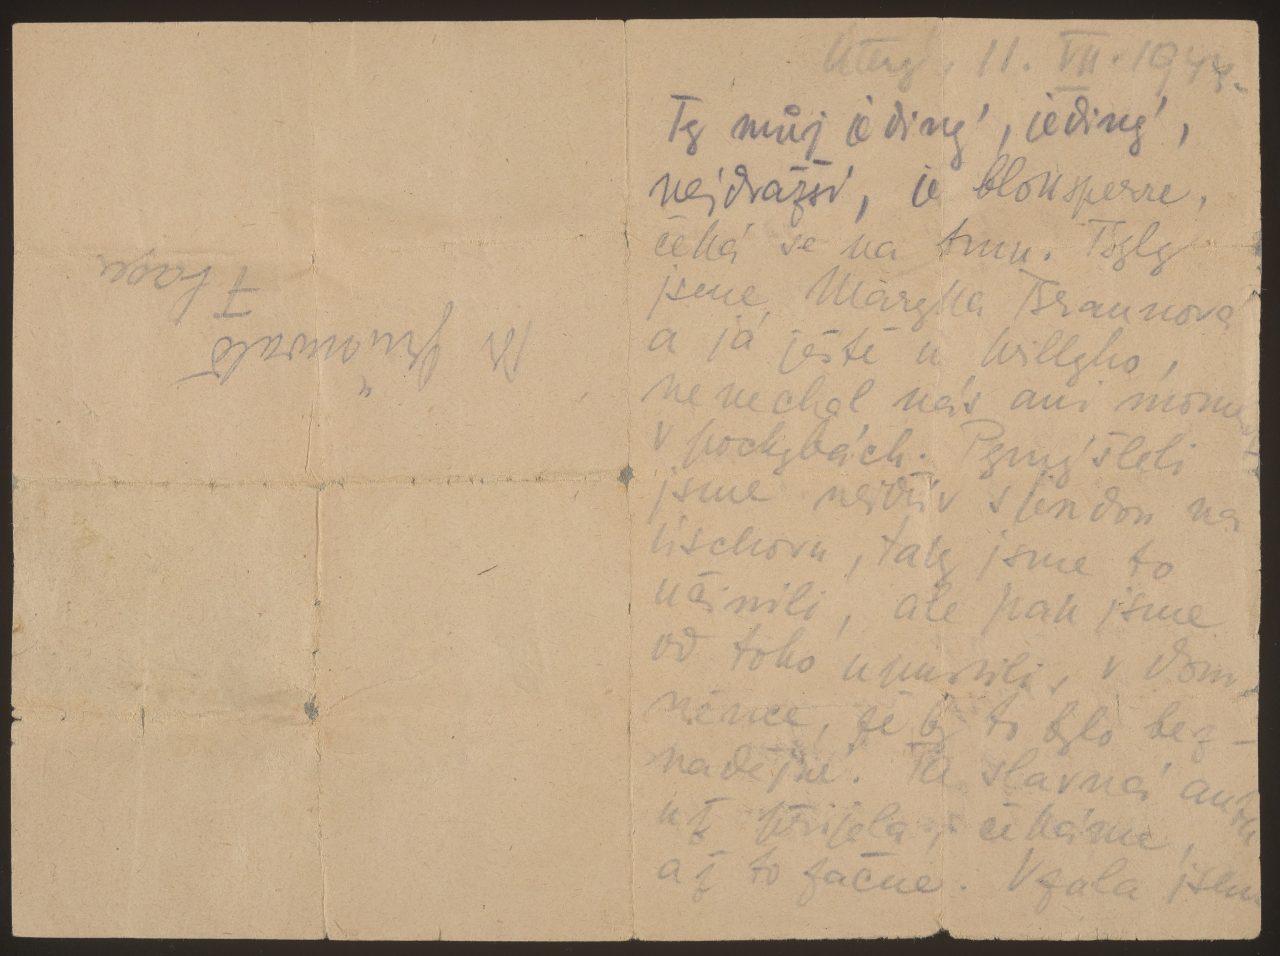 Úterý, 11. VII. 1944.
Ty můj jediný, jediný,
nejdražší, je bloksperre,
čeká se na tmu. Byly
jsme, Maryka Braunová
a já ještě u Willyho,
nenechal nás ani moment
v pochybách. Pomýšleli
jsme nejdřív s Jendou na
úschovu, taky jsme to
učinili, ale pak jsme
od toho upustili, v dom-
něnce, že by to bylo bez-
nadějné. Ta slavná auta
už přijela, čekáme,
až to začne. Vzala jsem
Dr Grünwald